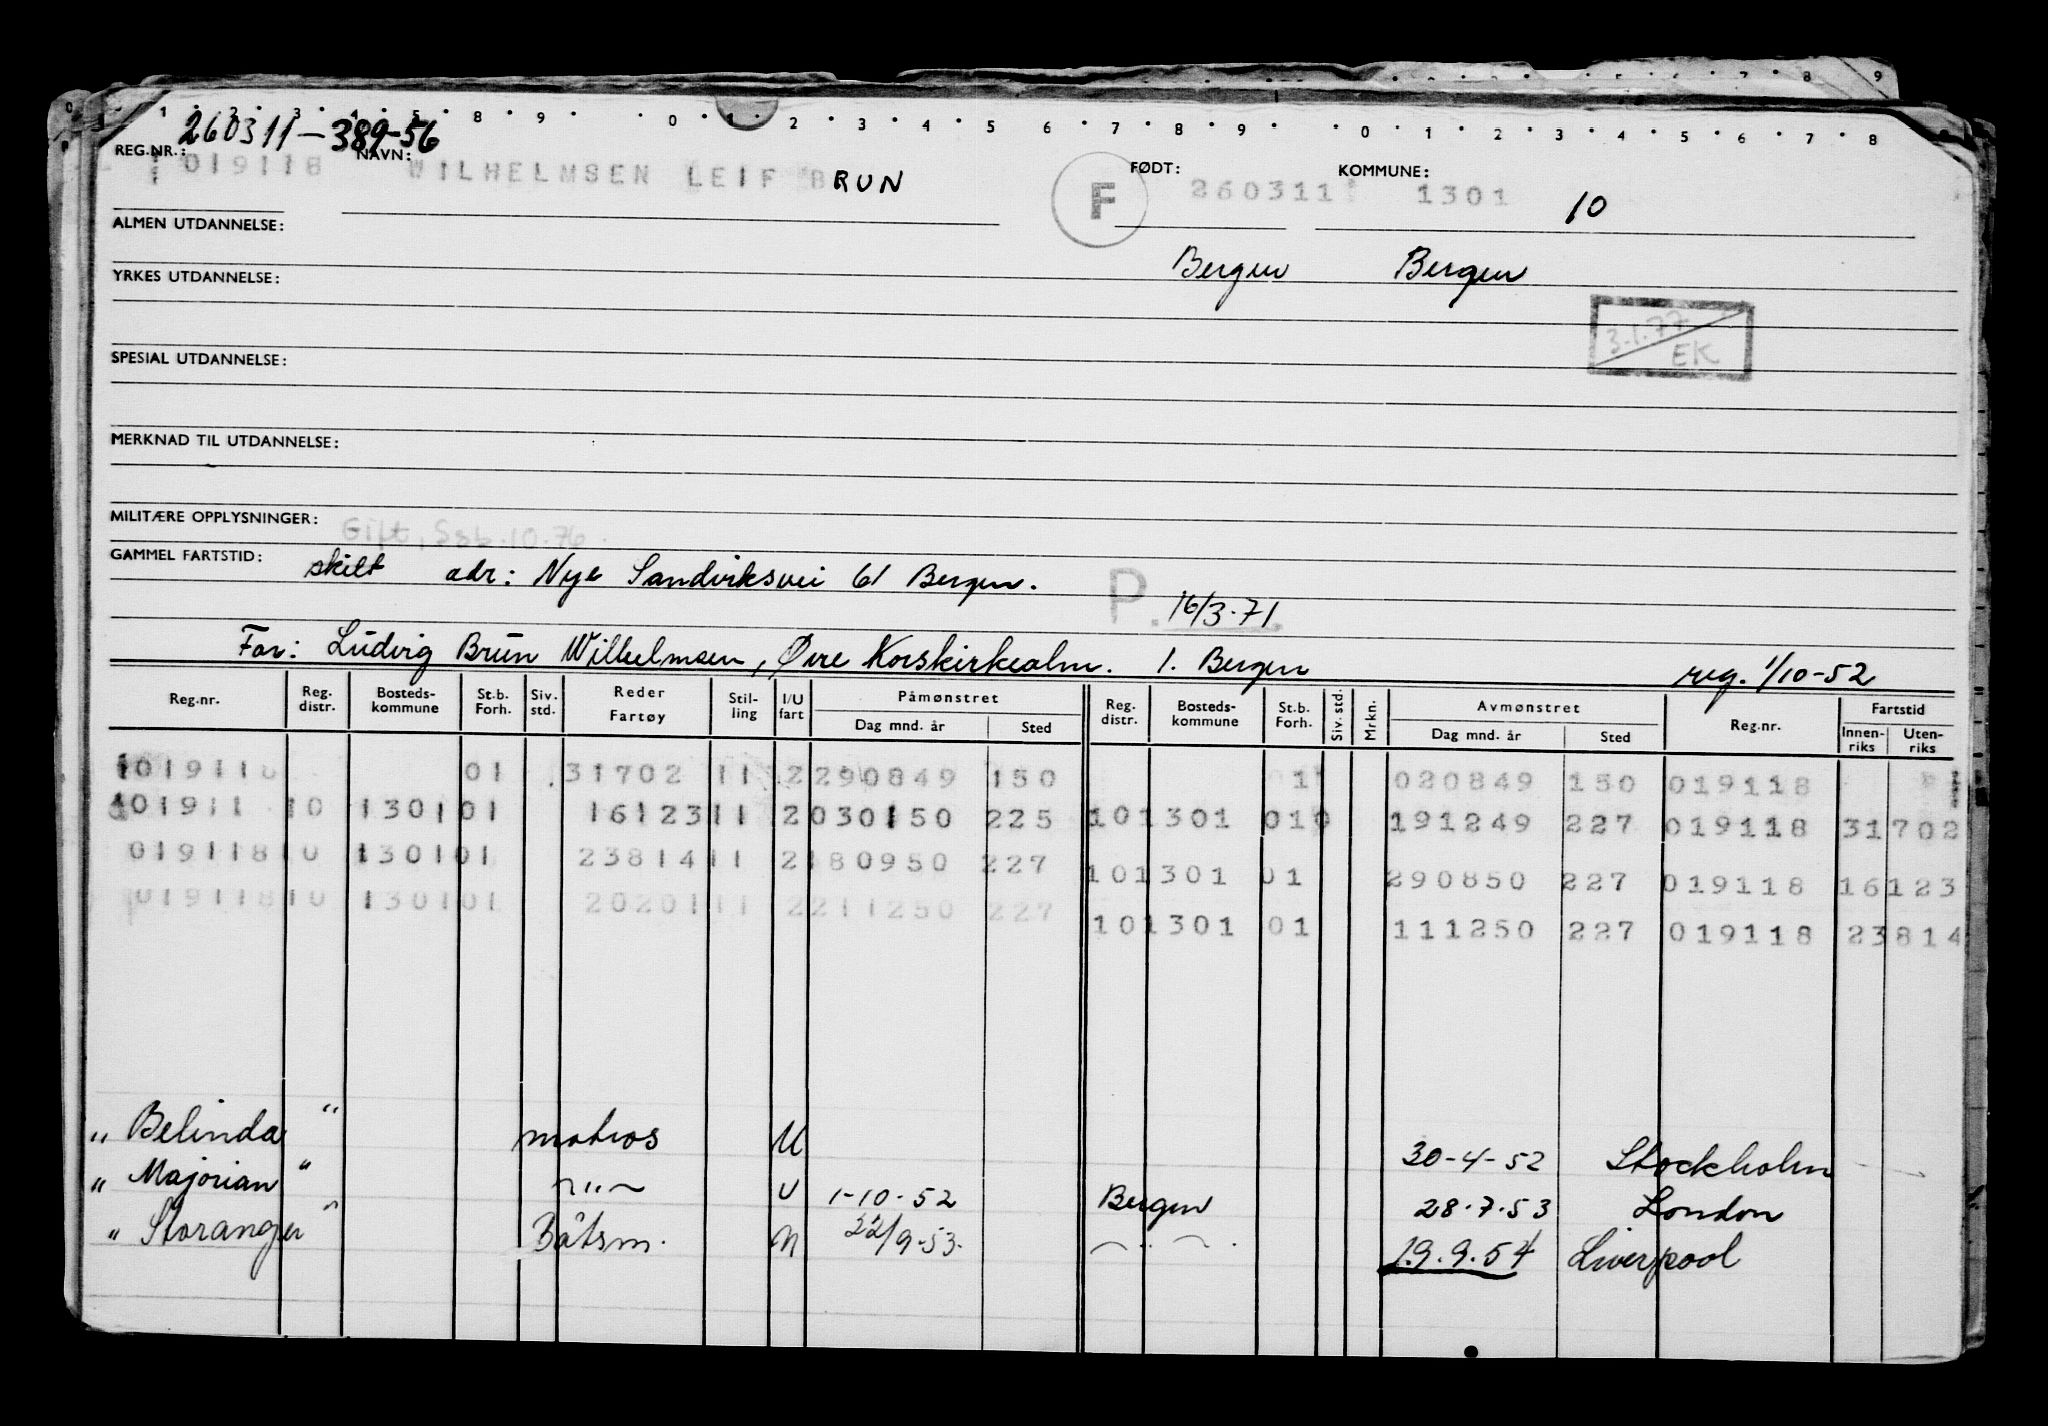 260311-389-56
REG.NR.: 019118 NAVN: WILHELMSEN LEIF BRUN F FØDT: 260311 KOMMUNE: 1301 10
ALMEN UTDANNELSE:
Bergen Bergen
YRKES UTDANNELSE:
3.1.77 EK
SPESIAL UTDANNELSE:
MERKNAD TIL UTDANNELSE:
MILITÆRE OPPLYSNINGER: Gift, Ssb.10.76.
GAMMEL FARTSTID: skilt adr: Nye Sandviksvei 61 Bergen.
P. 16/3-71
Far: Ludvig Brun Wilhelmsen, Øvre Korskirkealm. 1. Bergen reg. 1/10-52
Reg.nr. Reg. distr. Bosteds-kommune St.b. Forh. Siv. std. Reder Fartøy Stil-ling I/U fart Påmønstret Dag mnd. år Sted Reg. distr. Bosteds-kommune St.b. Forh. Siv. std. Mrkn. Avmønstret Dag mnd. år Sted Reg.nr. Fartstid Innen-riks Uten-riks
019118 01 31702 11 2 290849 150 1 020849 150 019118
101911 10 1301 01 16123 11 2 030150 225 10 1301 010 191249 227 019118 31702
019118 10 1301 01 23814 11 2 180950 227 10 1301 01 290850 227 019118 16123
019118 10 1301 01 20201 11 2 211250 227 10 1301 01 111250 227 019118 23814
" Belinda " matros U 30-4-52 Stockholm
" Majorian " -"- U 1-10-52 Bergen 28.7.53 London
" Storanger " Båtsm. U 22/9-53. -"- 19.9.54 Liverpool